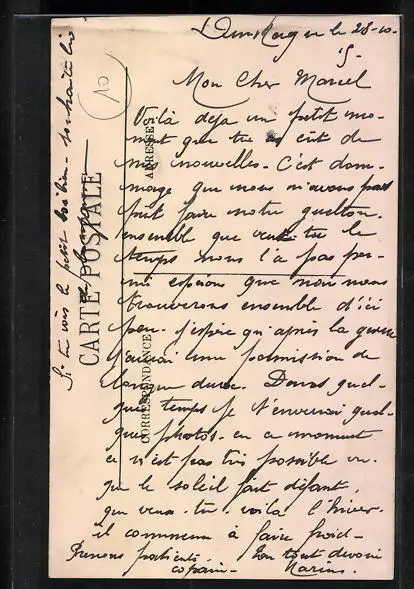 Dunkerque le 28-10-
15-
Mon Cher Marcel
Voilà déja un petit mo-
ment que tu as eut de
mes nouvelles. C'est dom-
mage que nous n'avons pas
put faire notre gueuleton
ensemble que veux-tu le
temps nous l'a pas per-
mi espérons que nous nous
trouverons ensemble d'ici
peu. j'espère qu'après la guerre
j'aurai une permission de
longue durée. Dans quel-
que temps je t'enverrai quel-
ques photos. en ce moment
ce n'est pas très possible vu
que le soleil fait défaut
que veux-tu voilà l'hiver
il commence à faire froid-
Prenons patience
copain-
Ton tout dévoué
Marius.
Si tu vois le petit souhaite lui
10
CARTE POSTALE
ADRESSE
CORRESPONDANCE